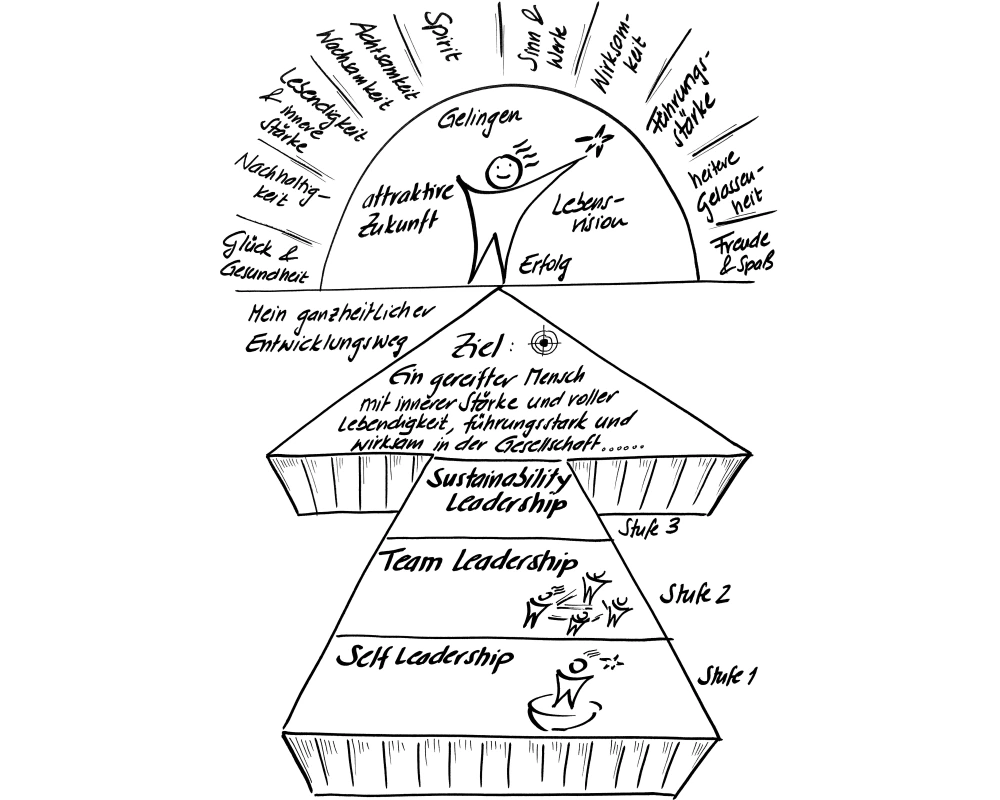 Glück &
Gesundheit
Nachhaltig-
keit
Lebendigkeit
& innere
Stärke
Achtsamkeit
Wachsamkeit
Spirit
Sinn &
Werte
Wirksam-
keit
Führungs-
stärke
heitere
Gelassen-
heit
Freude
& Spaß
Gelingen
attraktive
Zukunft
Lebens-
vision
Erfolg
Mein ganzheitlicher
Entwicklungsweg
Ziel:
Ein gereifter Mensch
mit innerer Stärke und voller
Lebendigkeit, führungsstark und
wirksam in der Gesellschaft......
Sustainability
Leadership
Stufe 3
Team Leadership
Stufe 2
Self Leadership
Stufe 1